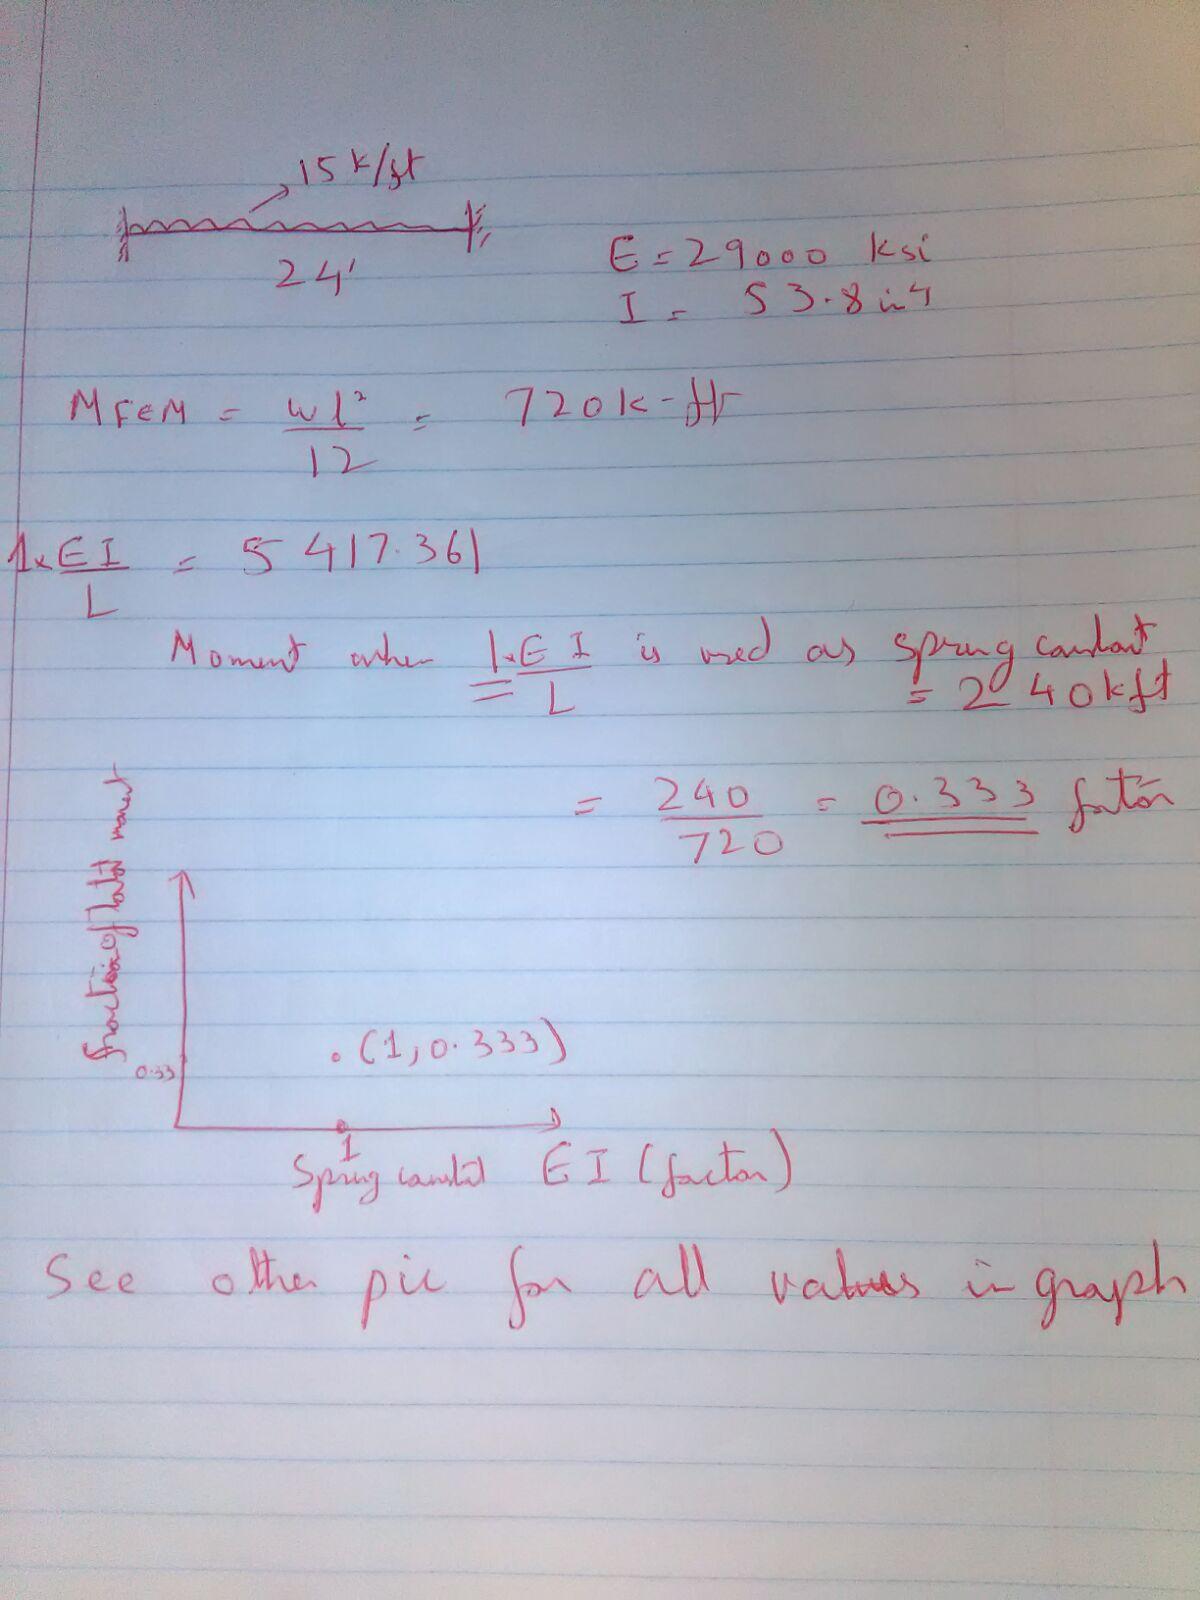 15 k/ft
24'
E = 29000 ksi
I = 53.8 in4
MFEM = wl² / 12 = 720 k-ft
1x EI / L = 5417.361
Moment when 1xEI / L is used as spring constant
= 240 k ft
= 240 / 720 = 0.333 factor
fraction of total moment
. (1, 0.333)
0.33
1
Spring constant EI (factor)
See other pic for all values in graph